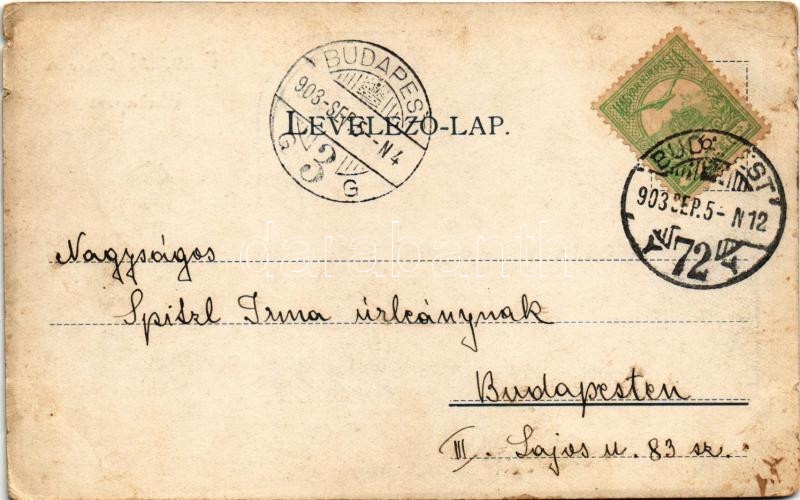 BUDAPEST
903-SEP.5-N4
3
G G
LEVELEZŐ-LAP.
BUDAPEST
903 SEP.5-N12
72
Nagyságos
Spitzl Irma úrleánynak
Budapesten
III. Lajos u. 83 sz.
darabanth